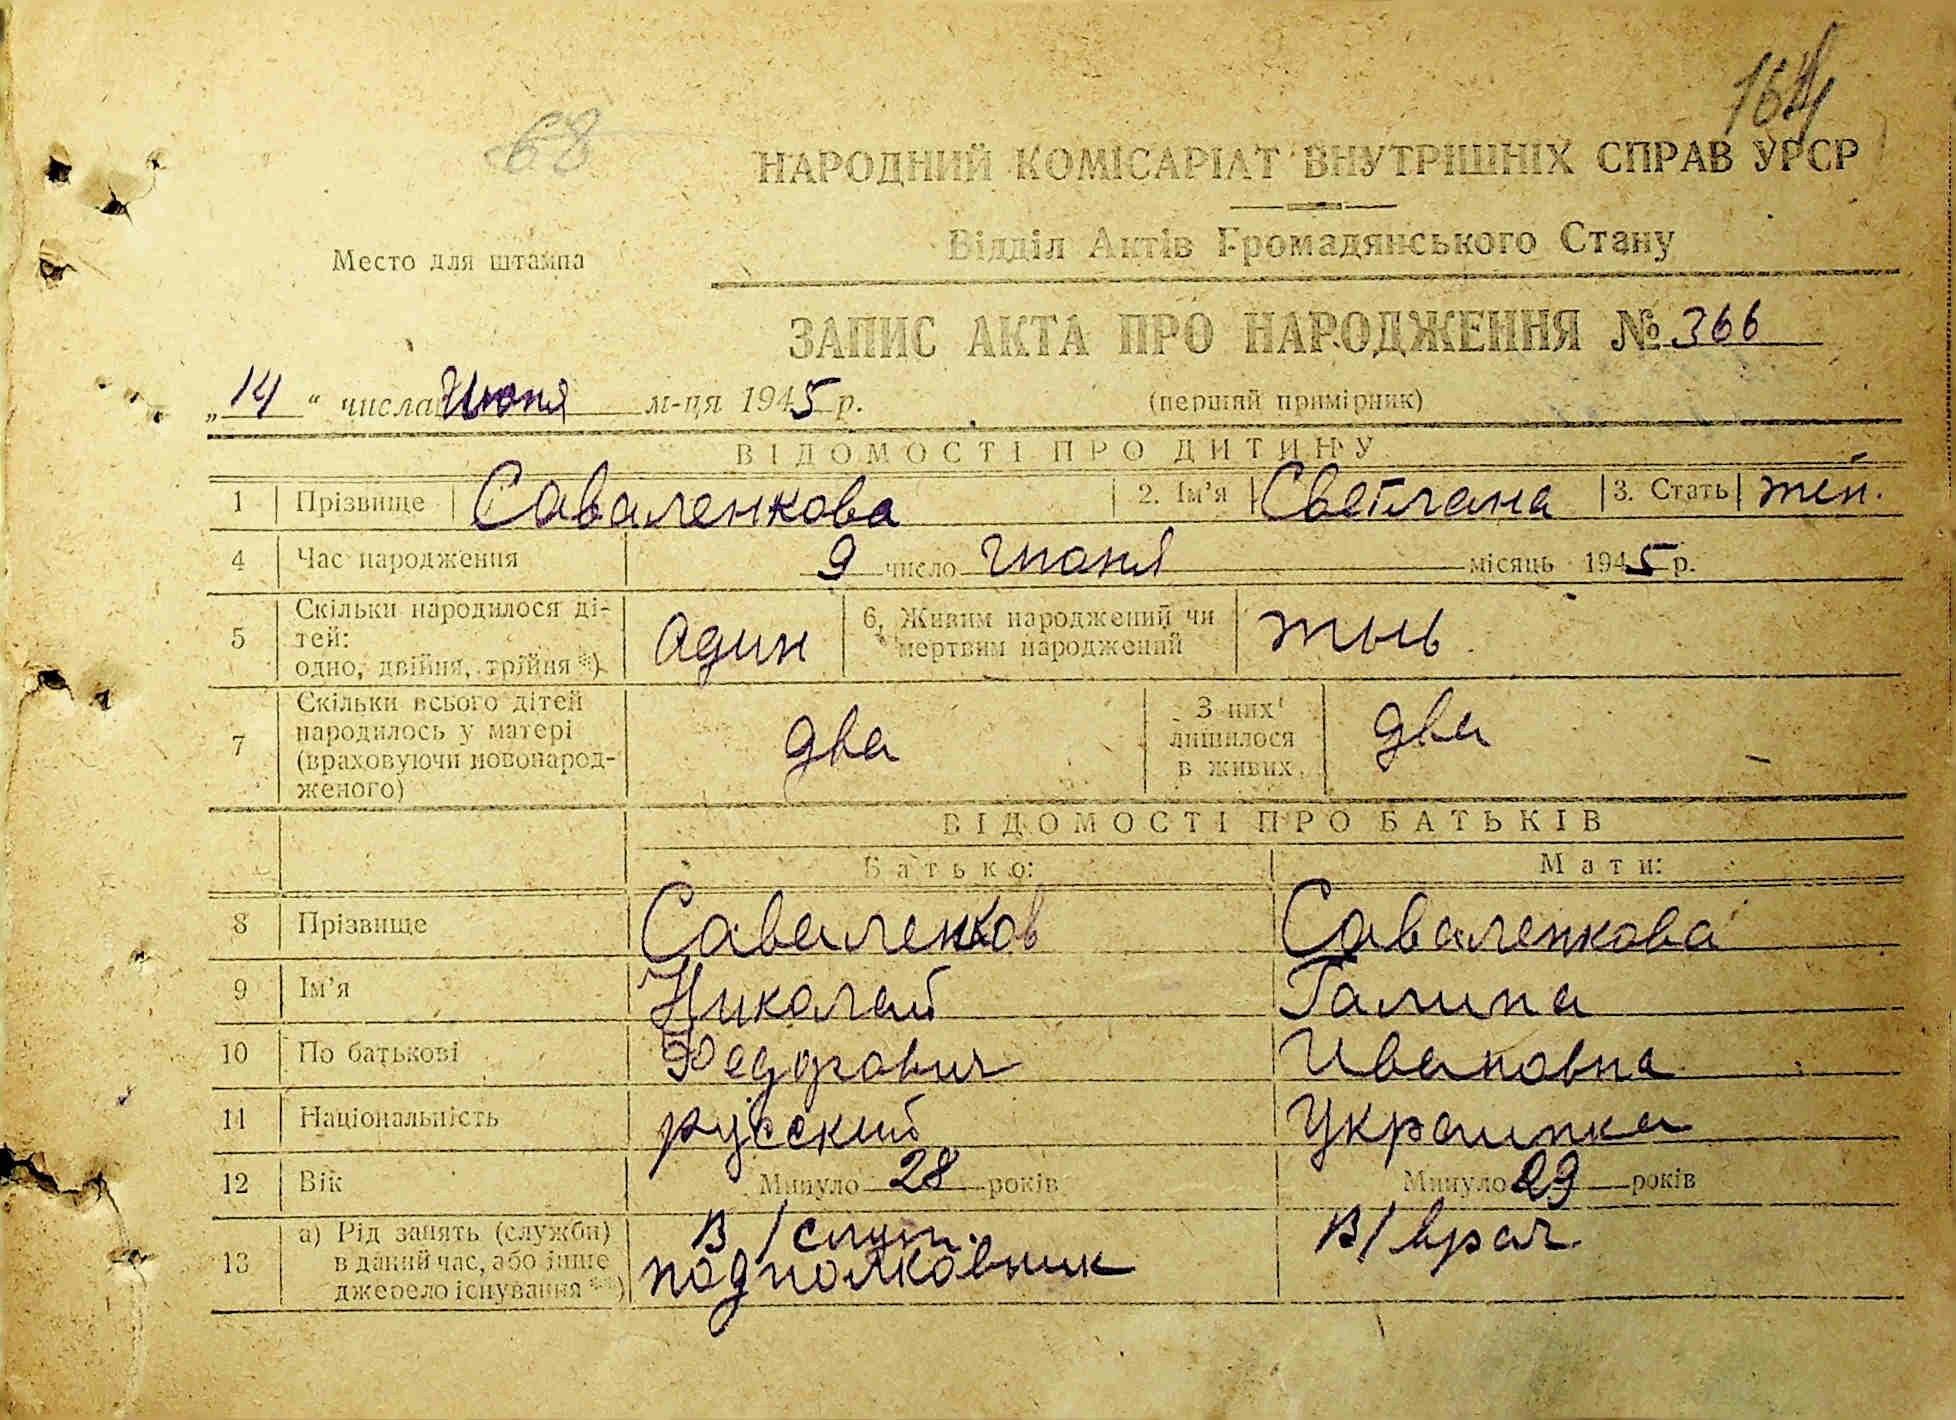 164
68
НАРОДНИЙ КОМІСАРІАТ ВНУТРІШНІХ СПРАВ УРСР
Відділ Актів Громадянського Стану
Место для штампа
ЗАПИС АКТА ПРО НАРОДЖЕННЯ № 366
„14“ числа Июня м-ця 1945 р. (перший примірник)
ВІДОМОСТІ ПРО ДИТИНУ
1 Прізвище Саваленкова 2. Ім'я Светлана 3. Стать жен.
4 Час народження 9 число Июня місяць 1945 р.
5 Скільки народилося ді-
тей:
одно, двійня, трійня *) один 6. Живим народжений чи
мертвим народжений
7 Скільки всього дітей
народилось у матері
(враховуючи новонарод-
женого) два З них
лишилося
в живих два
ВІДОМОСТІ ПРО БАТЬКІВ
Батько: Мати:
8 Прізвище Саваленков Саваленкова
9 Ім'я Николай Галина
10 По батькові Федорович Ивановна
11 Національність русский Украинка
12 Вік Минуло 28 років Минуло 29 років
13 а) Рід занять (служби)
в даний час, або інше
джерело існування **) В/служ.
подполковник В/врач.